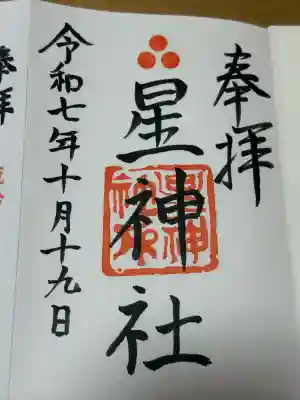 奉拝
星神社
令和七年十月十九日
拝